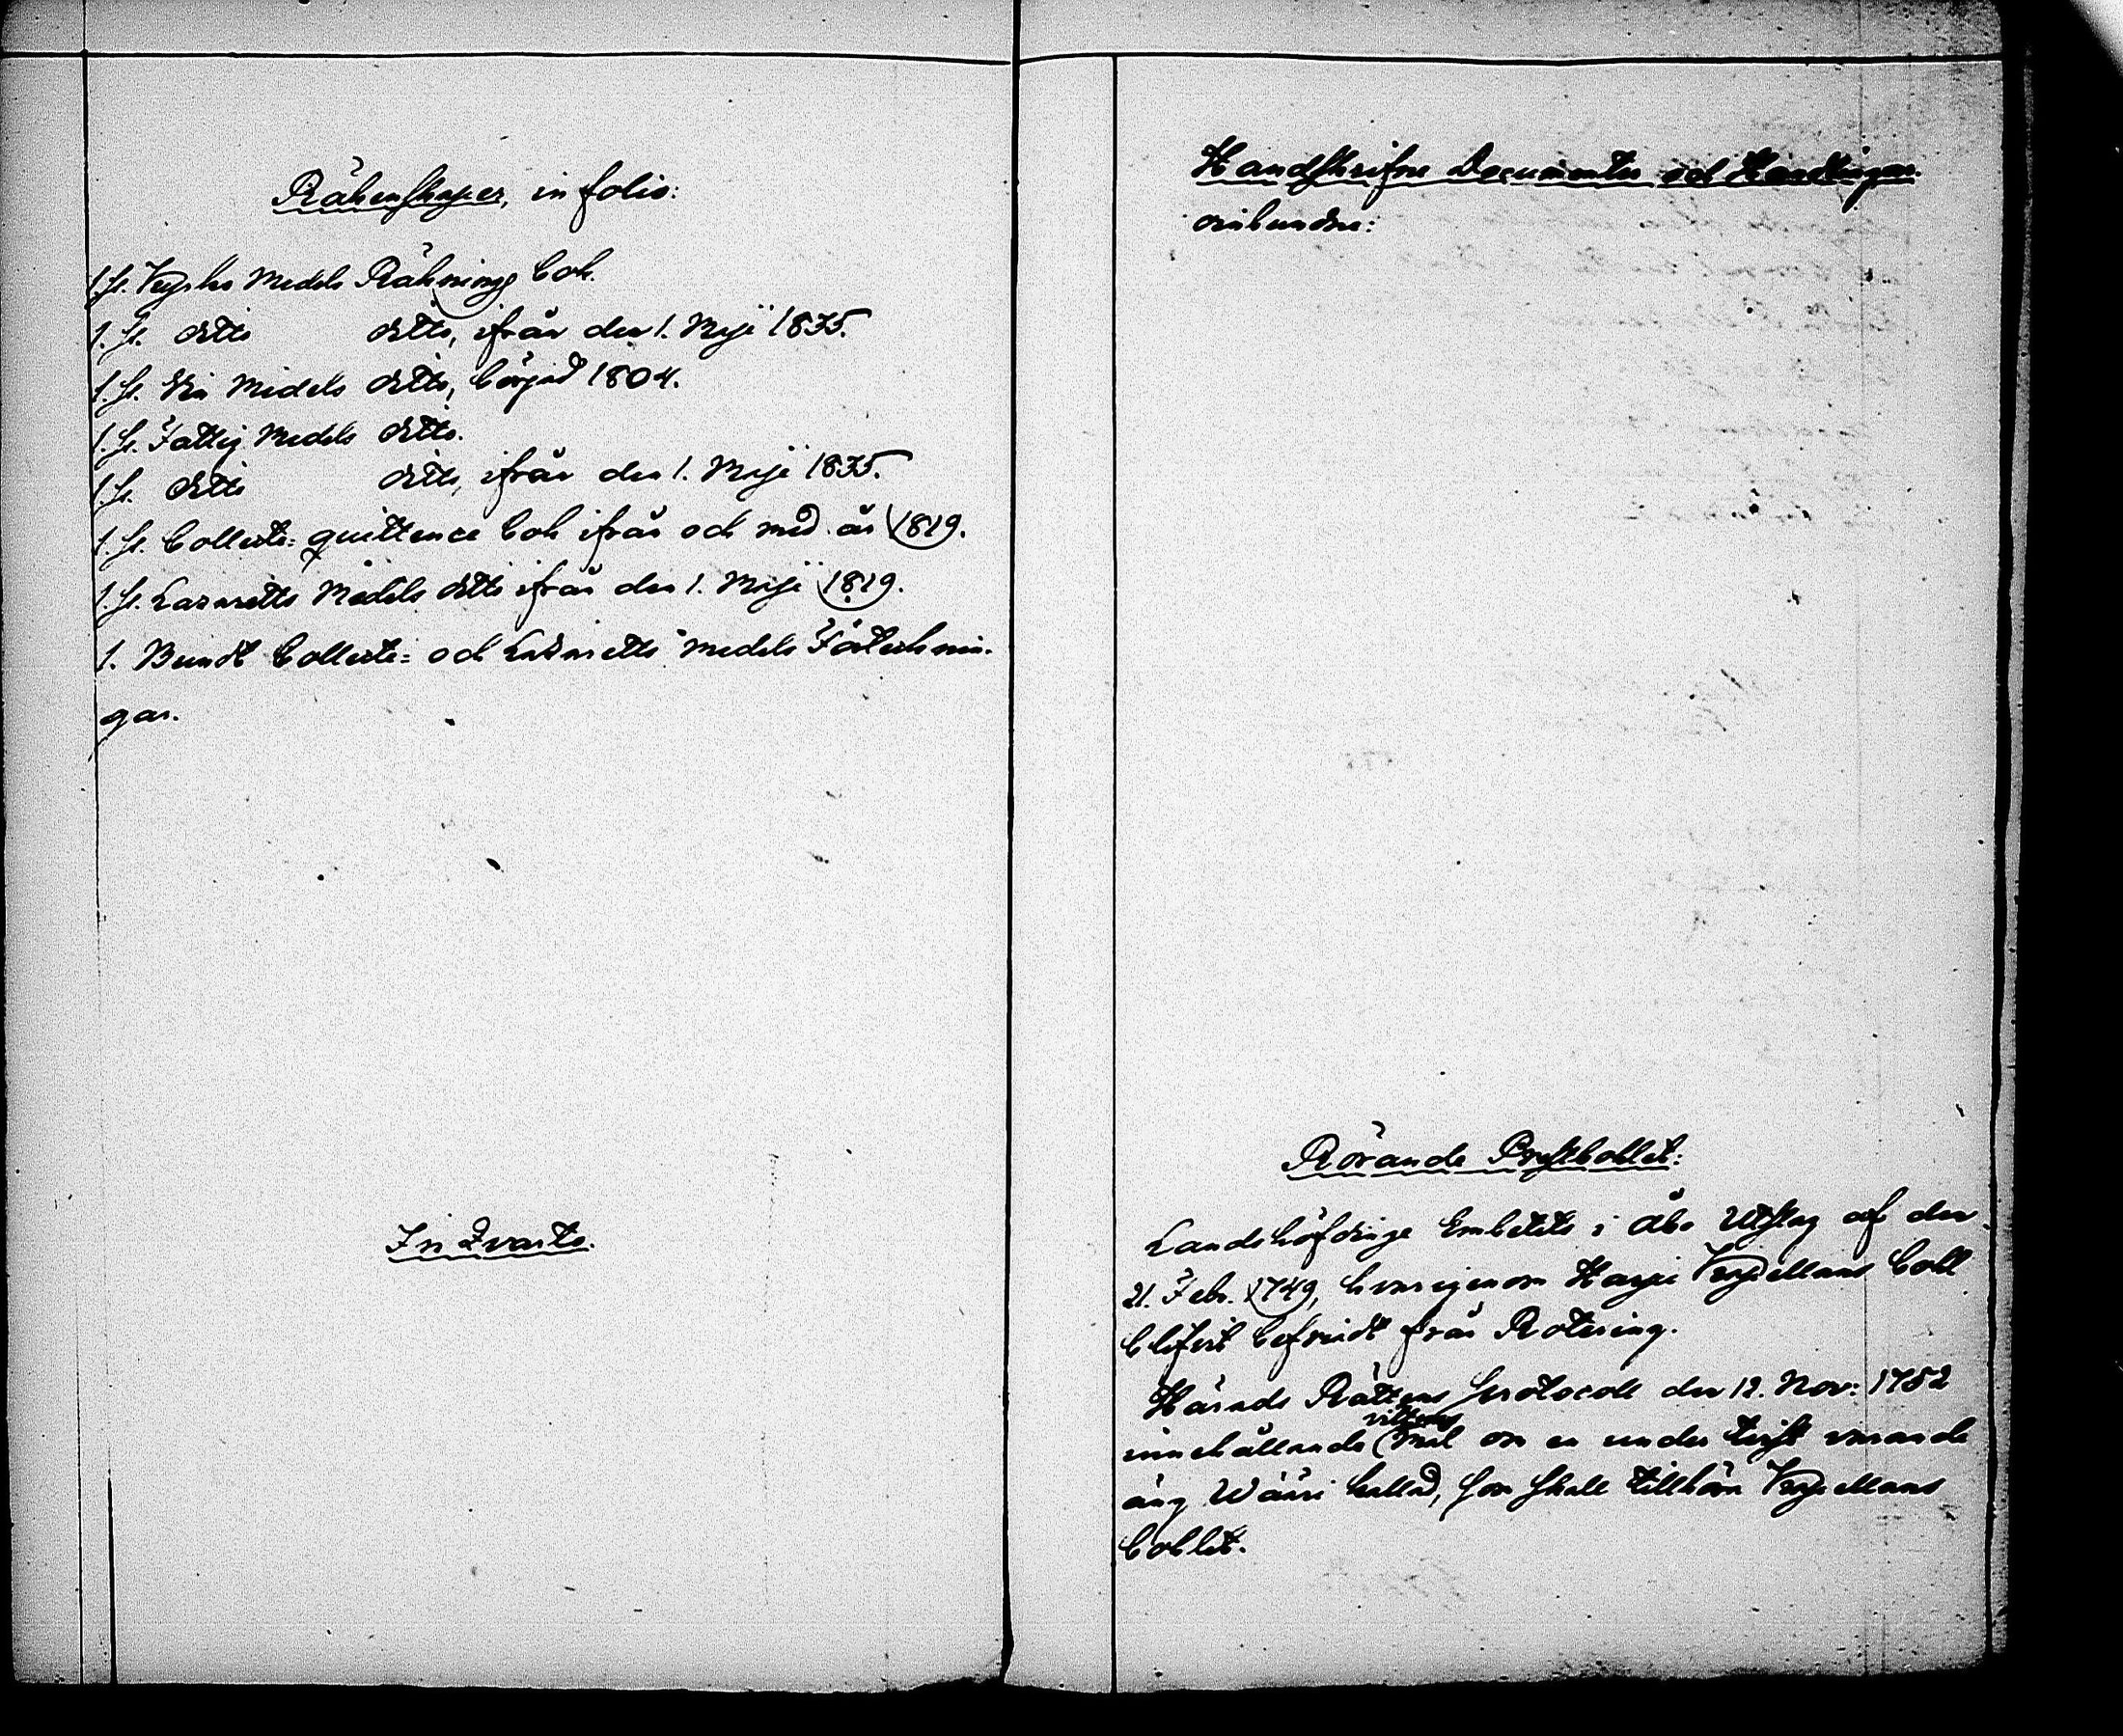 Räkenskaper, in folio:
1. st. Kyrko Medels Räkning bok.
1. st. ditto ditto, ifrån den 1. Maji 1835.
1. st. Vin Medels ditto, börjad 1804.
1. st. Fattig Medels ditto.
1. st. ditto ditto, ifrån den 1. Maji 1835.
1. st. Collecte= quittence bok ifrån och med år 1819.
1. st. Lazaretts Medels ditto ifrån den 1. Maji 1819.
1. Bundt Collecte= och Lazaretts medels Förtecknin-
gar.
In Qvarto.
Handskrifne Documenter och Handlingar
oinbundne:
Rörande Prestbohlet:
Landshöfdinge Embetets i Åbo Utslag af den
21. Febr. 1749, hvarigenom Harju Kapellans bohl
blifvit befriadt från Rotering.
Härads Rättens protocoll den 12. Nov: 1752
innehållande Mål om en under tvist varande
äng Wäiri kallad, som skall tillhöra Kapellans
bohlet.